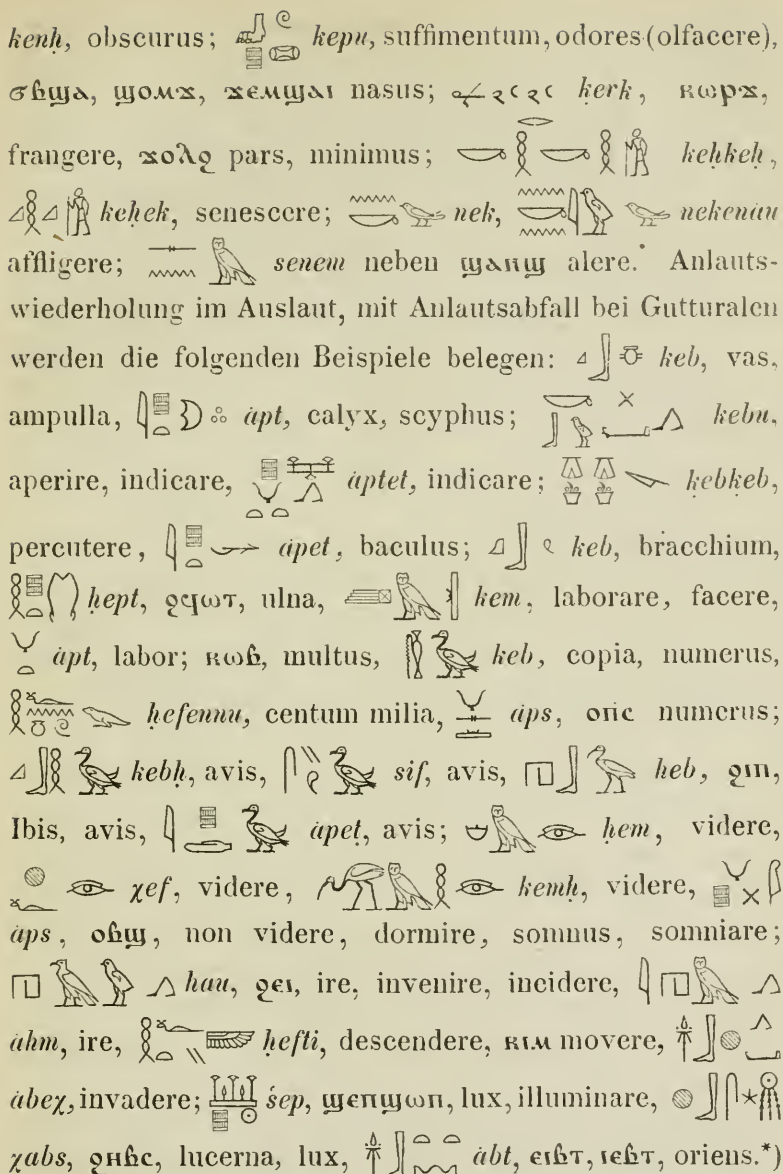 kenḥ, obscurus; kepu, suffimentum, odores (olfacere),
ϭⲃϣⲁ, ϣⲟⲙϫ, ϫⲉⲙϣⲁⲓ nasus; ḳerk, ⲕⲱⲣϫ,
frangere, ϫⲟⲗϩ pars, minimus; keḥkeḥ,
ḳeḥeḳ, senescere; nek, nekenȧu
affligere; senem neben ϣⲁⲛϣ alere. Anlauts-
wiederholung im Auslaut, mit Anlautsabfall bei Gutturalen
werden die folgenden Beispiele belegen: ḳeb, vas,
ampulla, ȧpt, calyx, scyphus; kebu,
aperire, indicare, ȧptet, indicare; ḳebḳeb,
percutere, ȧpet, baculus; ḳeb, bracchium,
ḥept, ϩϥⲱⲧ, ulna, kem, laborare, facere,
ȧpt, labor; ⲕⲱⲃ, multus, keb, copia, numerus,
ḥefennu, centum milia, ȧps, ⲟⲡⲥ numerus;
ḳebḥ, avis, sif, avis, heb, ϩⲓⲡ,
Ibis, avis, ȧpeṭ, avis; ḥem, videre,
χef, videre, ḳemḥ, videre,
ȧps, ⲟⲃϣ, non videre, dormire, somnus, somniare;
hau, ϩⲉⲓ, ire, invenire, incidere,
ȧhm, ire, ḥefti, descendere, ⲕⲓⲙ movere,
ȧbeχ, invadere; śep, ϣⲉⲡϣⲱⲡ, lux, illuminare,
χabs, ϩⲏⲃⲥ, lucerna, lux, ȧbt, ⲉⲓⲃⲧ, ⲓⲉⲃⲧ, oriens.*)